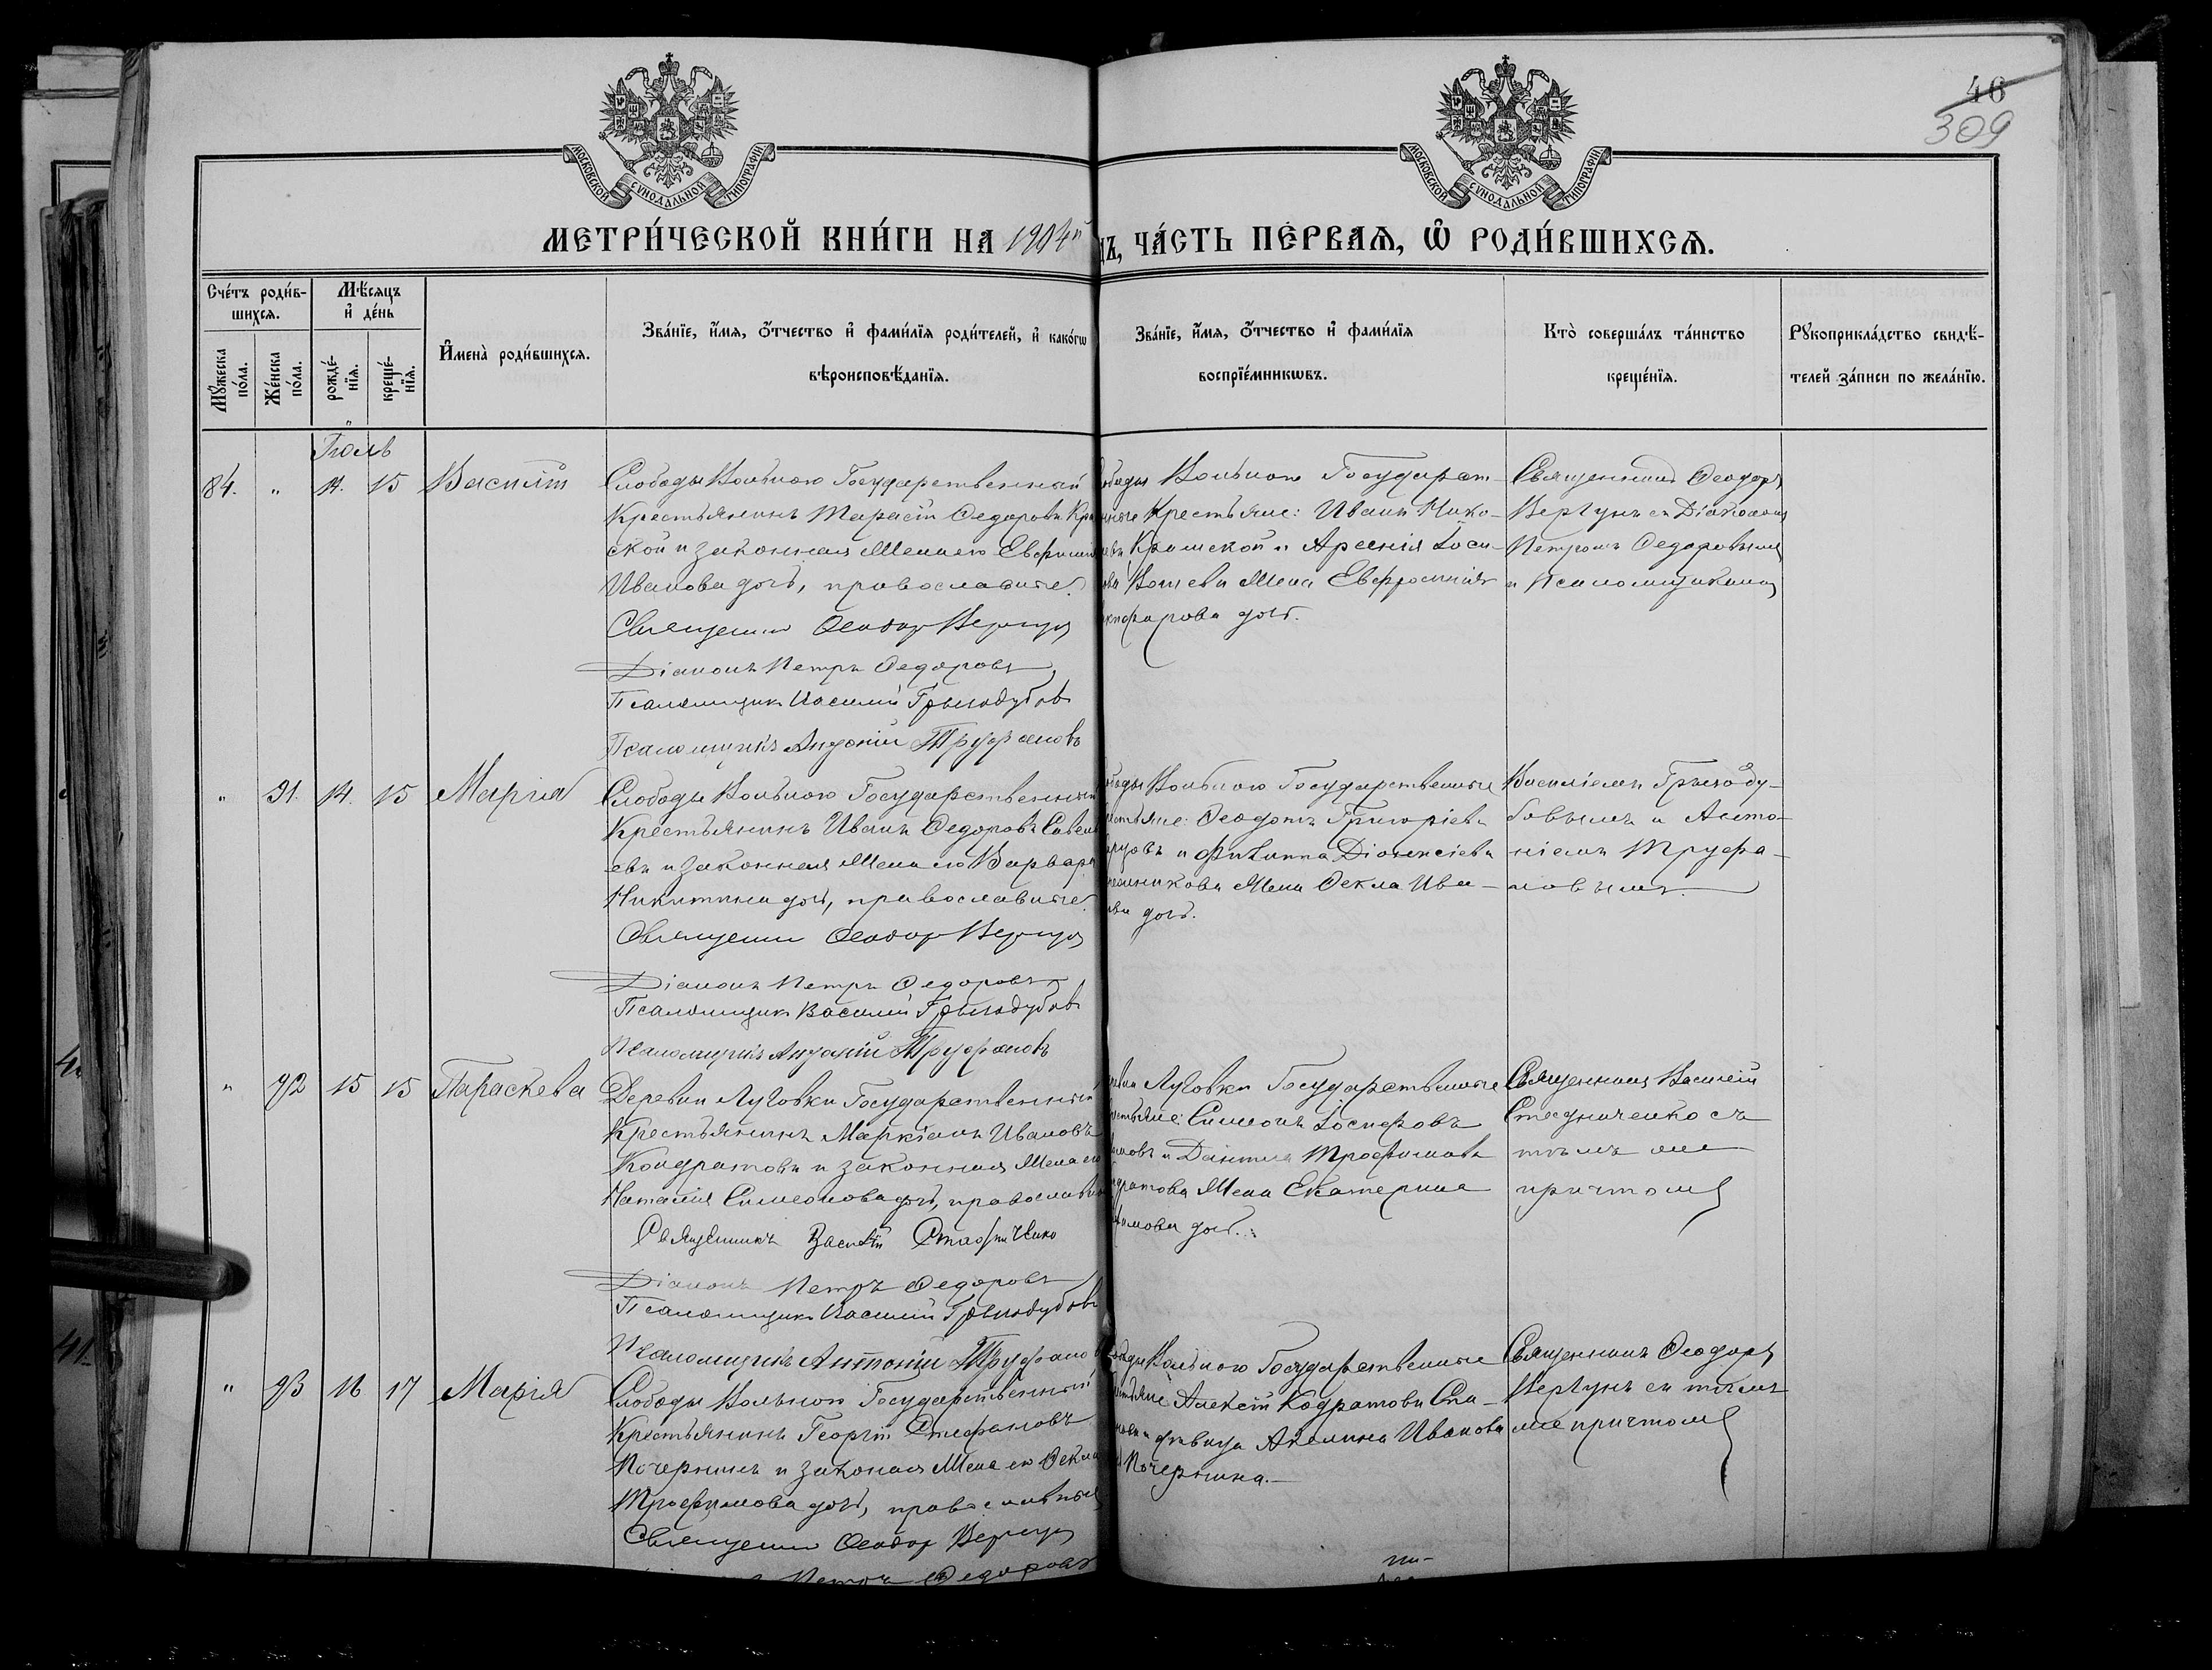 46
309
МОСКОВСКОЙ СѴНОДАЛЬНОЙ ТИПОГРАФІИ
МОСКОВСКОЙ СѴНОДАЛЬНОЙ ТИПОГРАФІИ
МЕТРИ́ЧЕСКОЙ КНИ́ГИ НА 1904й ДЪ, ЧА́СТЬ ПЕ́РВАѦ, Ѽ РОДИ́ВШИХСѦ.
Сче́тъ роди́в-
шихсѧ.
Мѣ́сѧцъ
и҆ де́нь
Мꙋ́жеска по́ла.
Же́нска по́ла.
рожде́-нїѧ.
креще́-нїѧ.
И҆мена̀ роди́вшихсѧ.
Зва́нїе, и҆́мѧ, ѻ҆́тчество и҆ фами́лїѧ роди́телей, и҆ како́гѡ
вѣроисповѣ́данїѧ.
Зва́нїе, и҆́мѧ, ѻ҆́тчество и҆ фами́лїѧ
воспрїе́мникѡвъ.
Кто̀ соверша́лъ та́инство
креще́нїѧ.
Рꙋкоприкла́дство свидѣ́-
телей за́писи по жела́нїю.
Іюль
84. " 14. 15 Василій
Слободы Вольного Государственный
Крестьянинъ Тарасій Федоровъ
ской и законная жена его
Иванова дочь, православные.
Священник Феодор Вергун
Діаконъ Петръ Федоровъ
Псаломщикъ Василий Грызодубов
Псаломщикъ Антоній Труфановъ
Вольного Государст-
Крестьяне: Иванъ Нико-
Крамской и Арсенія Іоси-
жена Евфросинія
дочь.
Священникъ Феодоръ
Вергунъ съ Діакономъ
Петромъ Федоровымъ
и Псаломщиками
" 91. 14. 15 Марія
Слободы Вольного Государственный
Крестьянинъ Иванъ Федоровъ Савель
евъ и законная жена его Варвара
Никитина дочь, православные.
Священник Феодор Вергун
Діаконъ Петръ Федоровъ
Псаломщикъ Василий Грызодубов
Псаломщикъ Антоній Труфановъ
Вольного Государственные
Феодотъ Григоріевъ
и Филиппа Діонисіева
жена Фекла Ива-
дочь.
Василіемъ Грызоду-
бовымъ и Анто-
ніемъ Труфа-
новымъ.
" 92 15 15 Параскева
Деревни Луговки Государственный
Крестьянинъ Маркіанъ Ивановъ
Кондратовъ и законная жена его
Наталія Симеонова дочь, православн
Священникъ Василій
Діаконъ Петръ Федоровъ
Псаломщикъ Василий Грызодубов
Псаломщикъ Антоній Труфанов
Луговки Государственные
Симеонъ Іосифовъ
и Даніила Трофимова
жена Екатерина
дочь.
Священникъ Василій
съ
тѣмъ же
причтомъ
" 93 16 17 Марія
Слободы Вольного Государственный
Крестьянинъ Георгій Стефановъ
Почернинъ и законная жена его Фекла
Трофимова дочь, православные
Священник Феодор Вергун
Петръ Федоровъ
Вольного Государственные
Алексій Кодратовъ
дѣвица Акилина Иванова
Почернина.
Священникъ Феодоръ
Вергунъ съ тѣмъ
же причтомъ